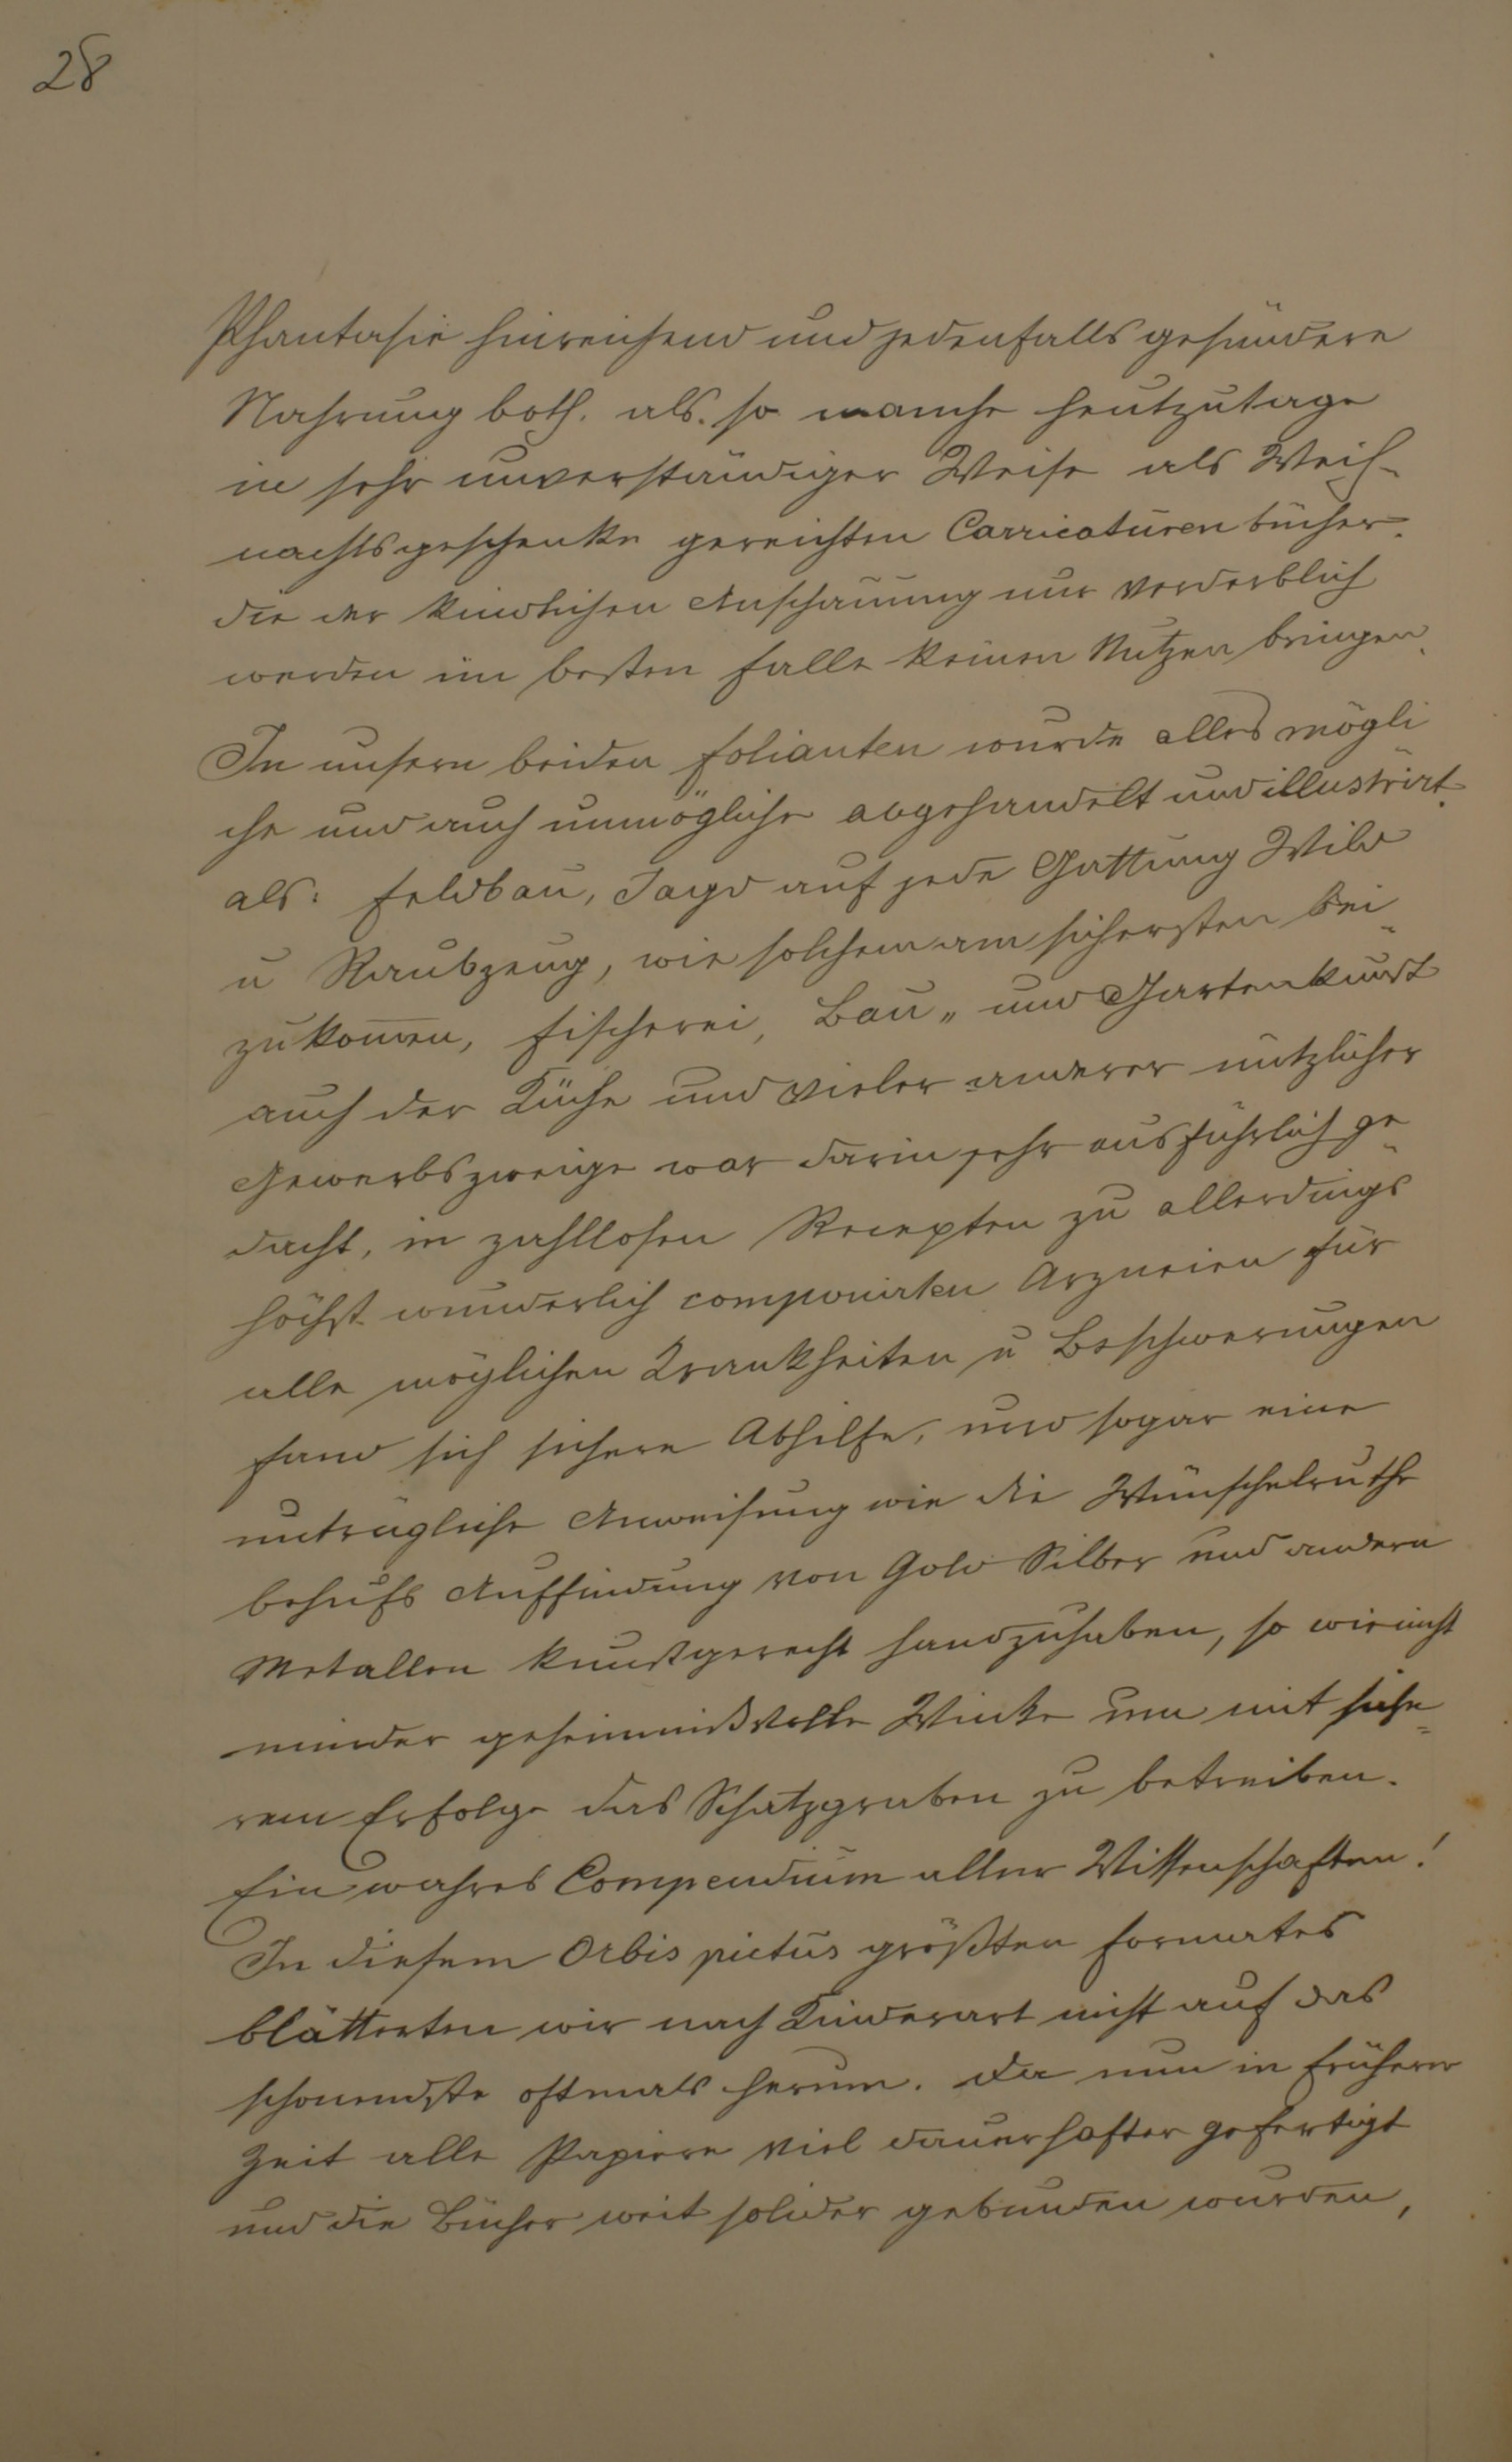 28
Phantasie hinreichend und jedenfalls gesündere
Nahrung both. als. so manche heutzutage
in sehr unverständiger Weise als Weih-
nachtsgeschenke gereichten Carricaturenbücher.
die der kindlichen Anschauung nur verderblich
werden im besten Falle keinen Nutzen bringen.
In unsern beiden Folianten wurde alles mögli
che und auch unmögliche abgehandelt und illustrirt.
als: Feldbau, Jagd auf jede Gattung Wild
u Raubzeug, wie solchem am sichersten bei-
zukom̄en, Fischerei, Bau„ und Gartenkunst
auch der Küche und vieler anderer nützlicher
Gewerbszweige war darin sehr ausführlich ge-
dacht, in zahllosen Recepten zu allerdings
höchst wunderlich componirten Arzneien für
alle möglichen Krankheiten u Beschwerungen
fand sich sichere Abhilfe, und sogar eine
untrügliche Anweisung wie die Wünschelruthe
behufs Auffindung von Gold Silber und andern
Metallen kunstgerecht handzuhaben, so wie nicht
minder geheimnißvolle Winke um mit siche=
rem Erfolge das Schatzgraben zu betreiben.
Ein wahres Compendium aller Wissenschaften!
In diesem Orbis pictus größten Formates
blätterten wir nach Kinderart nicht auf das
schonendste oftmals herum. Da nun in früherer
Zeit alle Papiere viel dauerhafter gefertigt
und die Bücher weit solider gebunden wurden,